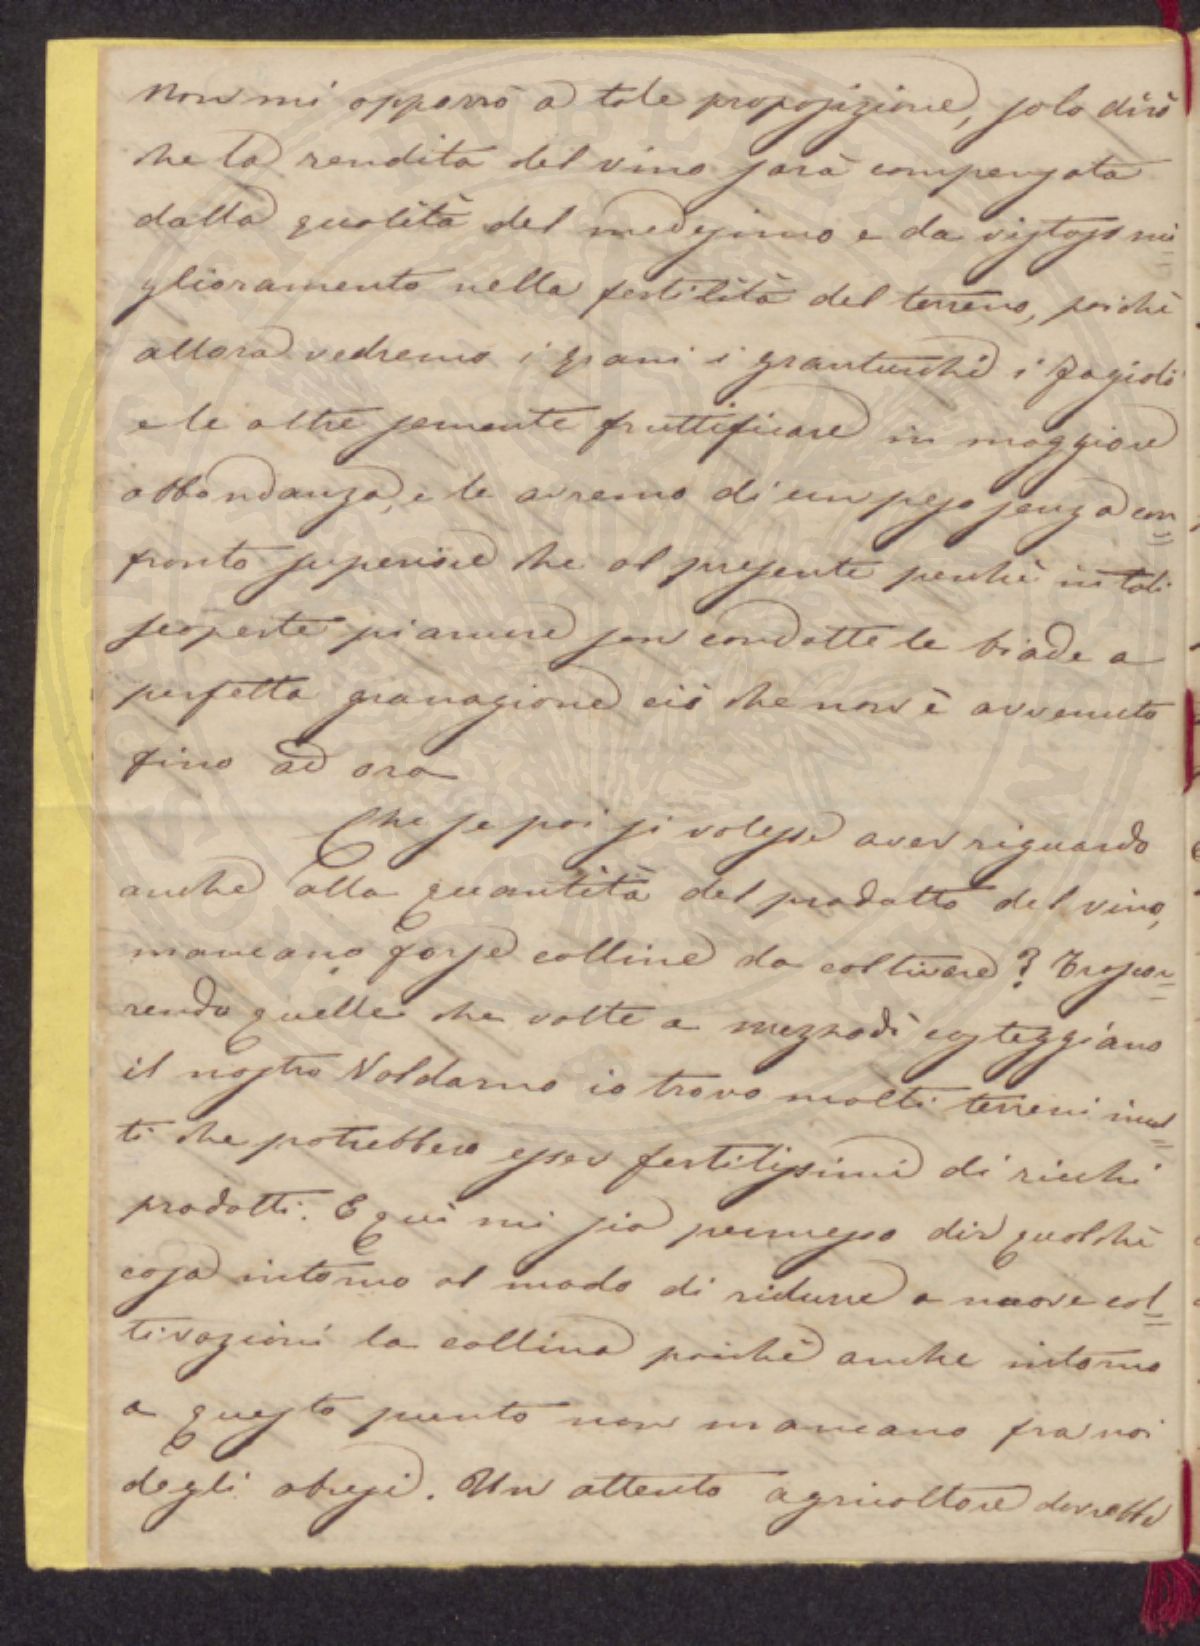 Non mi opporrò a tale proposizione, solo dirò
che la rendita del vino sarà compensata
dalla qualità del medesimo e da vistoso mi=
glioramento nella fertilità del terreno, poichè
allora vedremo i grani i granturchi i fagioli
e le altre semente fruttificare in maggiore
abbondanza, e le avremo di un peso senza con=
fronto superiore che al presente perchè in tali
scoperte pianure son condotte le biade a
perfetta granagione ciò che non è avvenuto
fino ad ora
Che se poi si volesse aver riguardo
anche alla quantità del prodotto del vino,
mancano forse colline da coltivare? Trascor=
rendo quelle che volte a mezzodì costeggiano
il nostro Valdarno io trovo molti terreni incul=
ti che potrebbero esser fertilissimi di ricchi
prodotti. E quì mi sia permesso dir qualchè
cosa intorno al modo di ridurre a nuove col=
tivazioni la collina poichè anche intorno
a questo punto non mancano fra noi
degli abusi. Un attento agricoltore dovrebbe